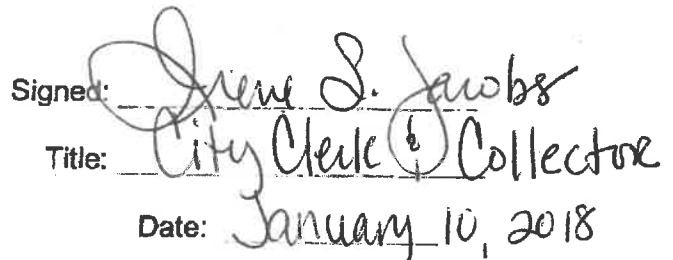 Signed: Irene S. Jacobs
Title: City Clerk & Collector
Date: January 10, 2018